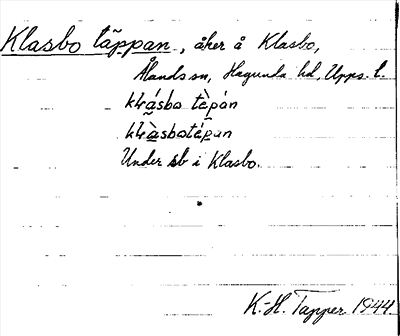 Klasbo täppan, åker å Klasbo,
Ålands sn, Hagunda hd, Upps. l.
klrásbo tèpán
klràsbotépan
Under sb i Klasbo.
K.-H. Tapper 1944